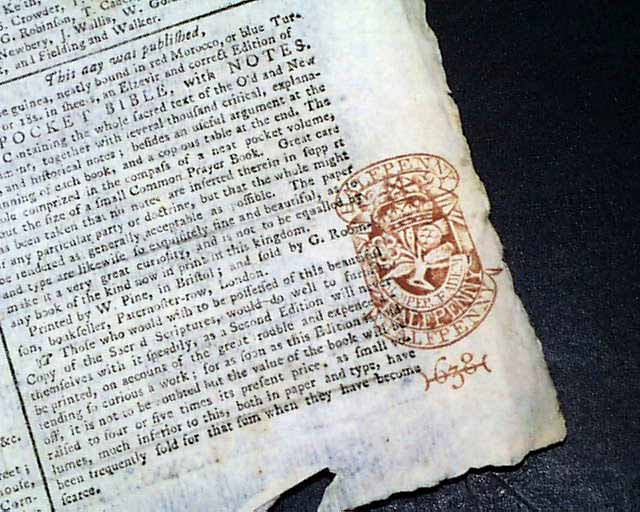 Crowder,
G. Robinson, T.
Newbery, J. Wallis, W.
and Fielding and Walker.
This day was published,
guinea, neatly bound in red Morocco, or blue Tur-
or 18s. in sheets, an Elzevir and correct Edition of
POCKET BIBLE, with NOTES.
Containing the whole sacred text of the Old and New
together with several thousand critical, explana-
and historical notes; besides an useful argument at the
of each book, and a copious table at the end. The
comprized in the compass of a neat pocket volume,
but the size of a small Common Prayer Book. Great care
has been taken that no notes are inserted therein in supp rt
any particular party or doctrine, but that the whole might
rendered as generally acceptable as possible. The paper
and type are likewise exquisitely fine and beautiful, so as to
make it a very great curiosity, and is not to be equalled by
any book of the kind now in print in this kingdom.
Printed by W. Pine, in Bristol; and sold by G. Robin-
son, bookseller, Paternoster-row, London.
Those who would wish to be possessed of this beautiful
Copy of the Sacred Scriptures, would do well to furnish
themselves with it speedily, as a Second Edition will
be printed, on account of the great trouble and expence
tending so curious a work; for as soon as this Edition
off, it is not to be doubted but the value of the book will
raised to four or five times its present price, as small
lumes, much inferior to this, both in paper and type, have
been frequently sold for that sum when they have become
scarce.
&c.
HALFPENNY
HALFPENNY
1638